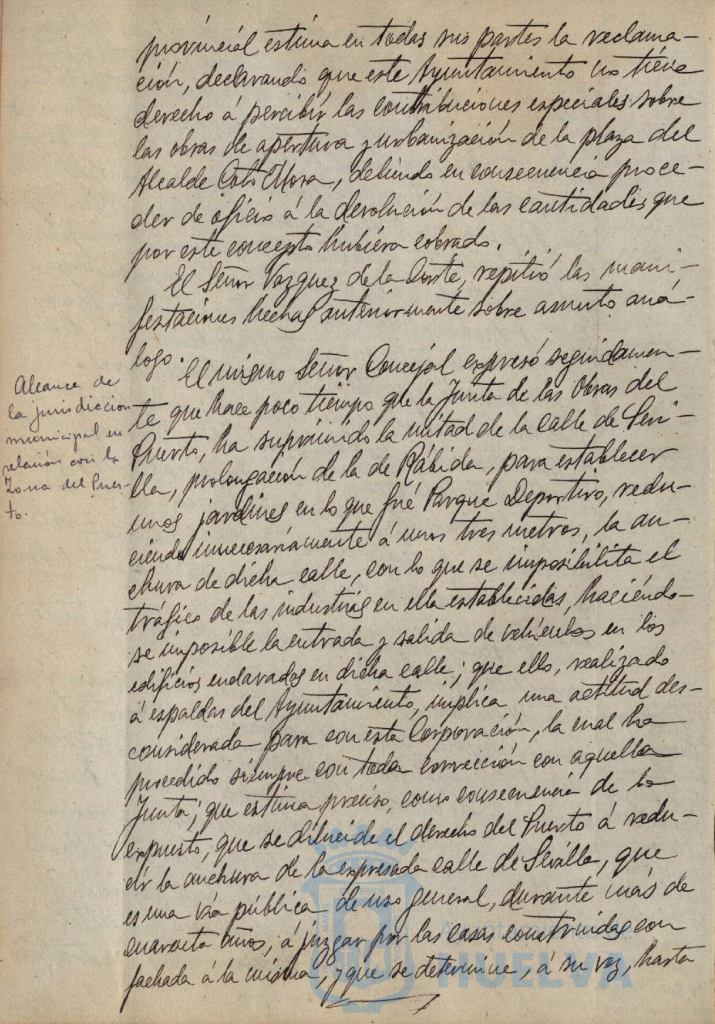 provincial estima en todas sus partes la reclama-
ción, declarando que este Ayuntamiento no tiene
derecho á percibir las contribuciones especiales sobre
las obras de apertura y urbanización de la plaza del
Alcalde Coto Mora, debiendo en consecuencia proce-
der de oficio á la devolución de las cantidades que
por este concepto hubiera cobrado.
El Señor Vazquez de la Corte, repitió las mani-
festaciones hechas anteriormente sobre asunto aná-
logo.
El mismo Señor Concejal expresó seguidamen-
te que hace poco tiempo que la Junta de las Obras del
Puerto, ha suprimido la mitad de la calle de Sevi-
lla, prolongación de la de Rábida, para establecer
unos jardines en lo que fué Parque Deportivo, redu-
ciendo innecesariamente á unos tres metros, la an-
chura de dicha calle, con lo que se imposibilita el
tráfico de las industrias en ella establecidas, haciéndo-
se imposible la entrada y salida de vehículos en los
edificios enclavados en dicha calle; que ello, realizado
á espaldas del Ayuntamiento, implica una actitud des-
considerada para con esta Corporación, la cual ha
procedido siempre con toda corrección con aquella
Junta; que estima preciso, como consecuencia de lo
expuesto, que se dilucide el derecho del Puerto á redu-
cir la anchura de la expresada calle de Sevilla, que
es una vía pública de uso general, durante más de
cuarenta años, á juzgar por las casas construidas con
fachada á la misma, y que se determine, á su vez, hasta
Alcance de
la jurisdiccion
municipal en
relación con la
Zona del Puer-
to.
HUELVA